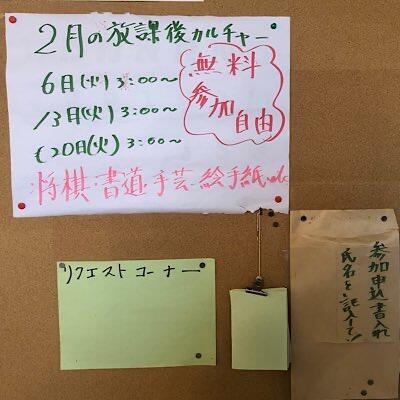 2月の放課後カルチャー
6日(火)3:00〜
13日(火)3:00〜
20日(火)3:00〜
無料
参加
自由
将棋・書道・手芸・絵手紙etc
リクエストコーナー
参加申込書入れ
氏名を記入して!